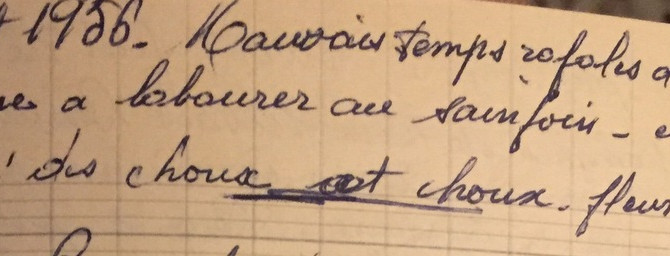 1956. Mauvais temps rafales
a labourer au sainfoin -
des choux et choux. fleur